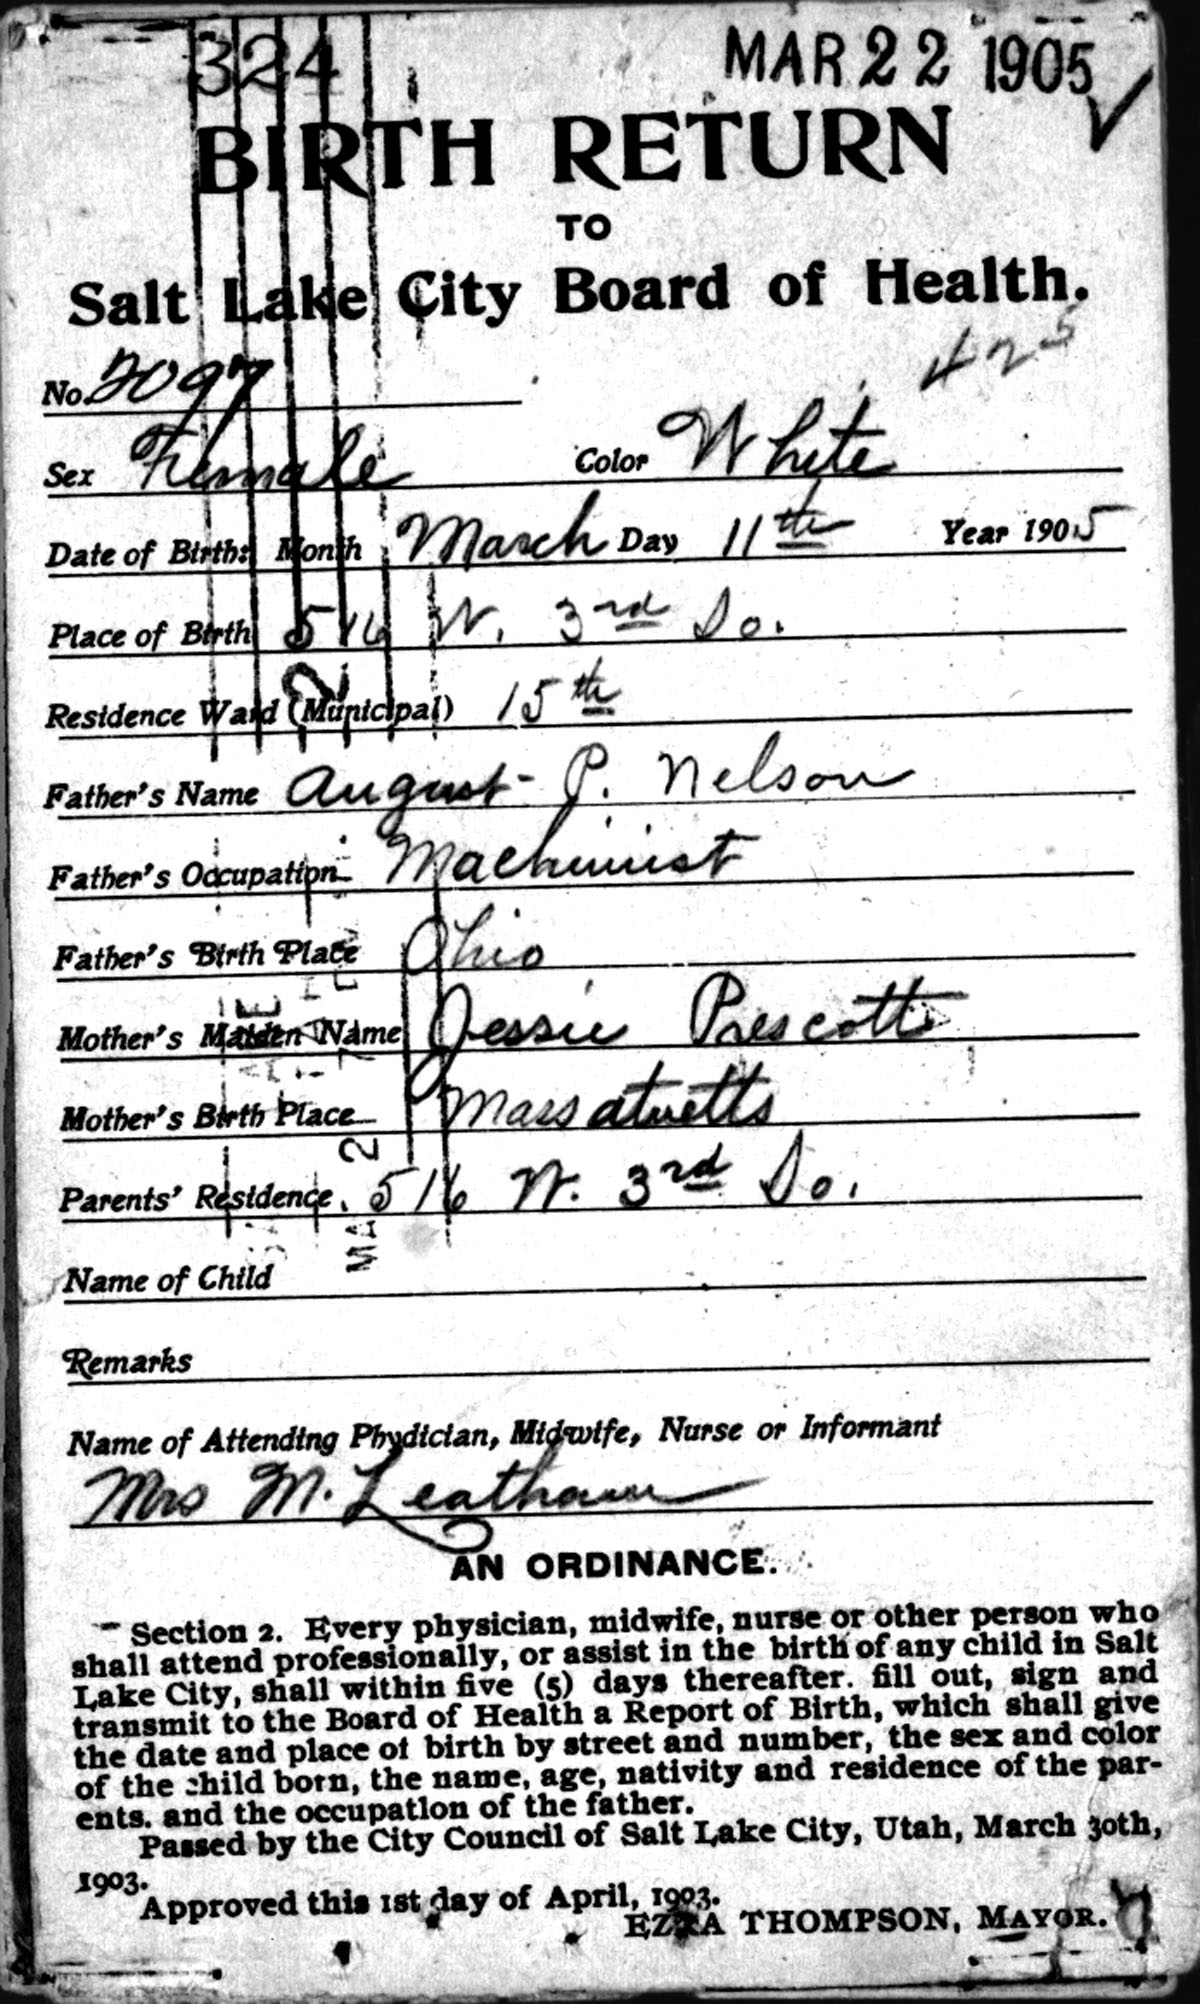 324 MAR 22 1905
BIRTH RETURN
TO
Salt Lake City Board of Health.
425
No. 2097
Sex Female Color White
Date of Birth: Month March Day 11th Year 1905
Place of Birth 516 W. 3rd So.
Residence Ward (Municipal) 15th
Father's Name August P. Nelson
Father's Occupation Machinist
Father's Birth Place Ohio
Mother's Maiden Name Jessie Prescott
Mother's Birth Place Massatuetts
Parents' Residence 516 W. 3rd So.
Name of Child
Remarks
Name of Attending Phydician, Midwife, Nurse or Informant
Mrs M. Leatham
AN ORDINANCE.
Section 2. Every physician, midwife, nurse or other person who
shall attend professionally, or assist in the birth of any child in Salt
Lake City, shall within five (5) days thereafter. fill out, sign and
transmit to the Board of Health a Report of Birth, which shall give
the date and place of birth by street and number, the sex and color
of the child born, the name, age, nativity and residence of the par-
ents. and the occupation of the father.
Passed by the City Council of Salt Lake City, Utah, March 30th,
1903.
Approved this 1st day of April, 1903.
EZRA THOMPSON, MAYOR.